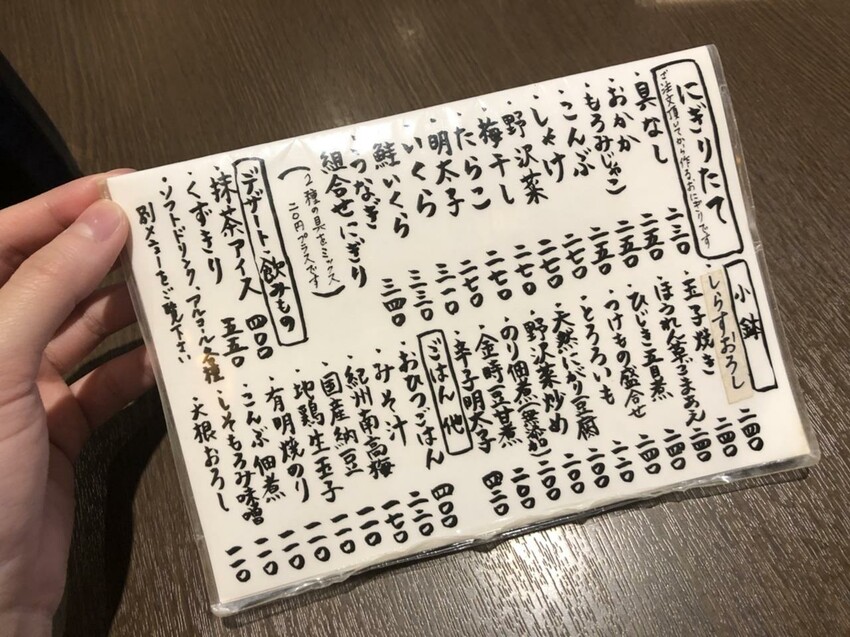 にぎりたて
ご注文頂いてから作るおにぎりです
・具なし 二三〇
・おかか 二五〇
・もろみじゃこ 二五〇
・こんぶ 二五〇
・しゃけ 二七〇
・野沢菜 二七〇
・梅干し 二七〇
・たらこ 二七〇
・明太子 二七〇
・いくら 三一〇
・鮭いくら 三三〇
・うなぎ 三四〇
組合せにぎり
(2種の具をミックス
二〇円プラスです)
デザート・飲みもの
・抹茶アイス 四〇〇
・くずきり 五五〇
・ソフトドリンク、アルコール各種
別メニューをご覧下さい
小鉢
しらすおろし 二四〇
・玉子焼き 二四〇
・ほうれん草ごまあえ 二四〇
・ひじき五目煮 二四〇
・つけもの盛合せ 二四〇
・とろろいも
・天然にがり豆腐 二〇〇
・野沢菜炒め 二〇〇
・のり佃煮(無添加) 二〇〇
・金時豆甘煮 二〇〇
・辛子明太子
ごはん他
・おひつごはん 四〇〇
・みそ汁
・紀州南高梅 一七〇
・国産納豆 一一〇
・地鶏生玉子 一一〇
・有明焼のり 一一〇
・こんぶ佃煮 一一〇
・しそもろみ味噌 一一〇
・大根おろし 一一〇